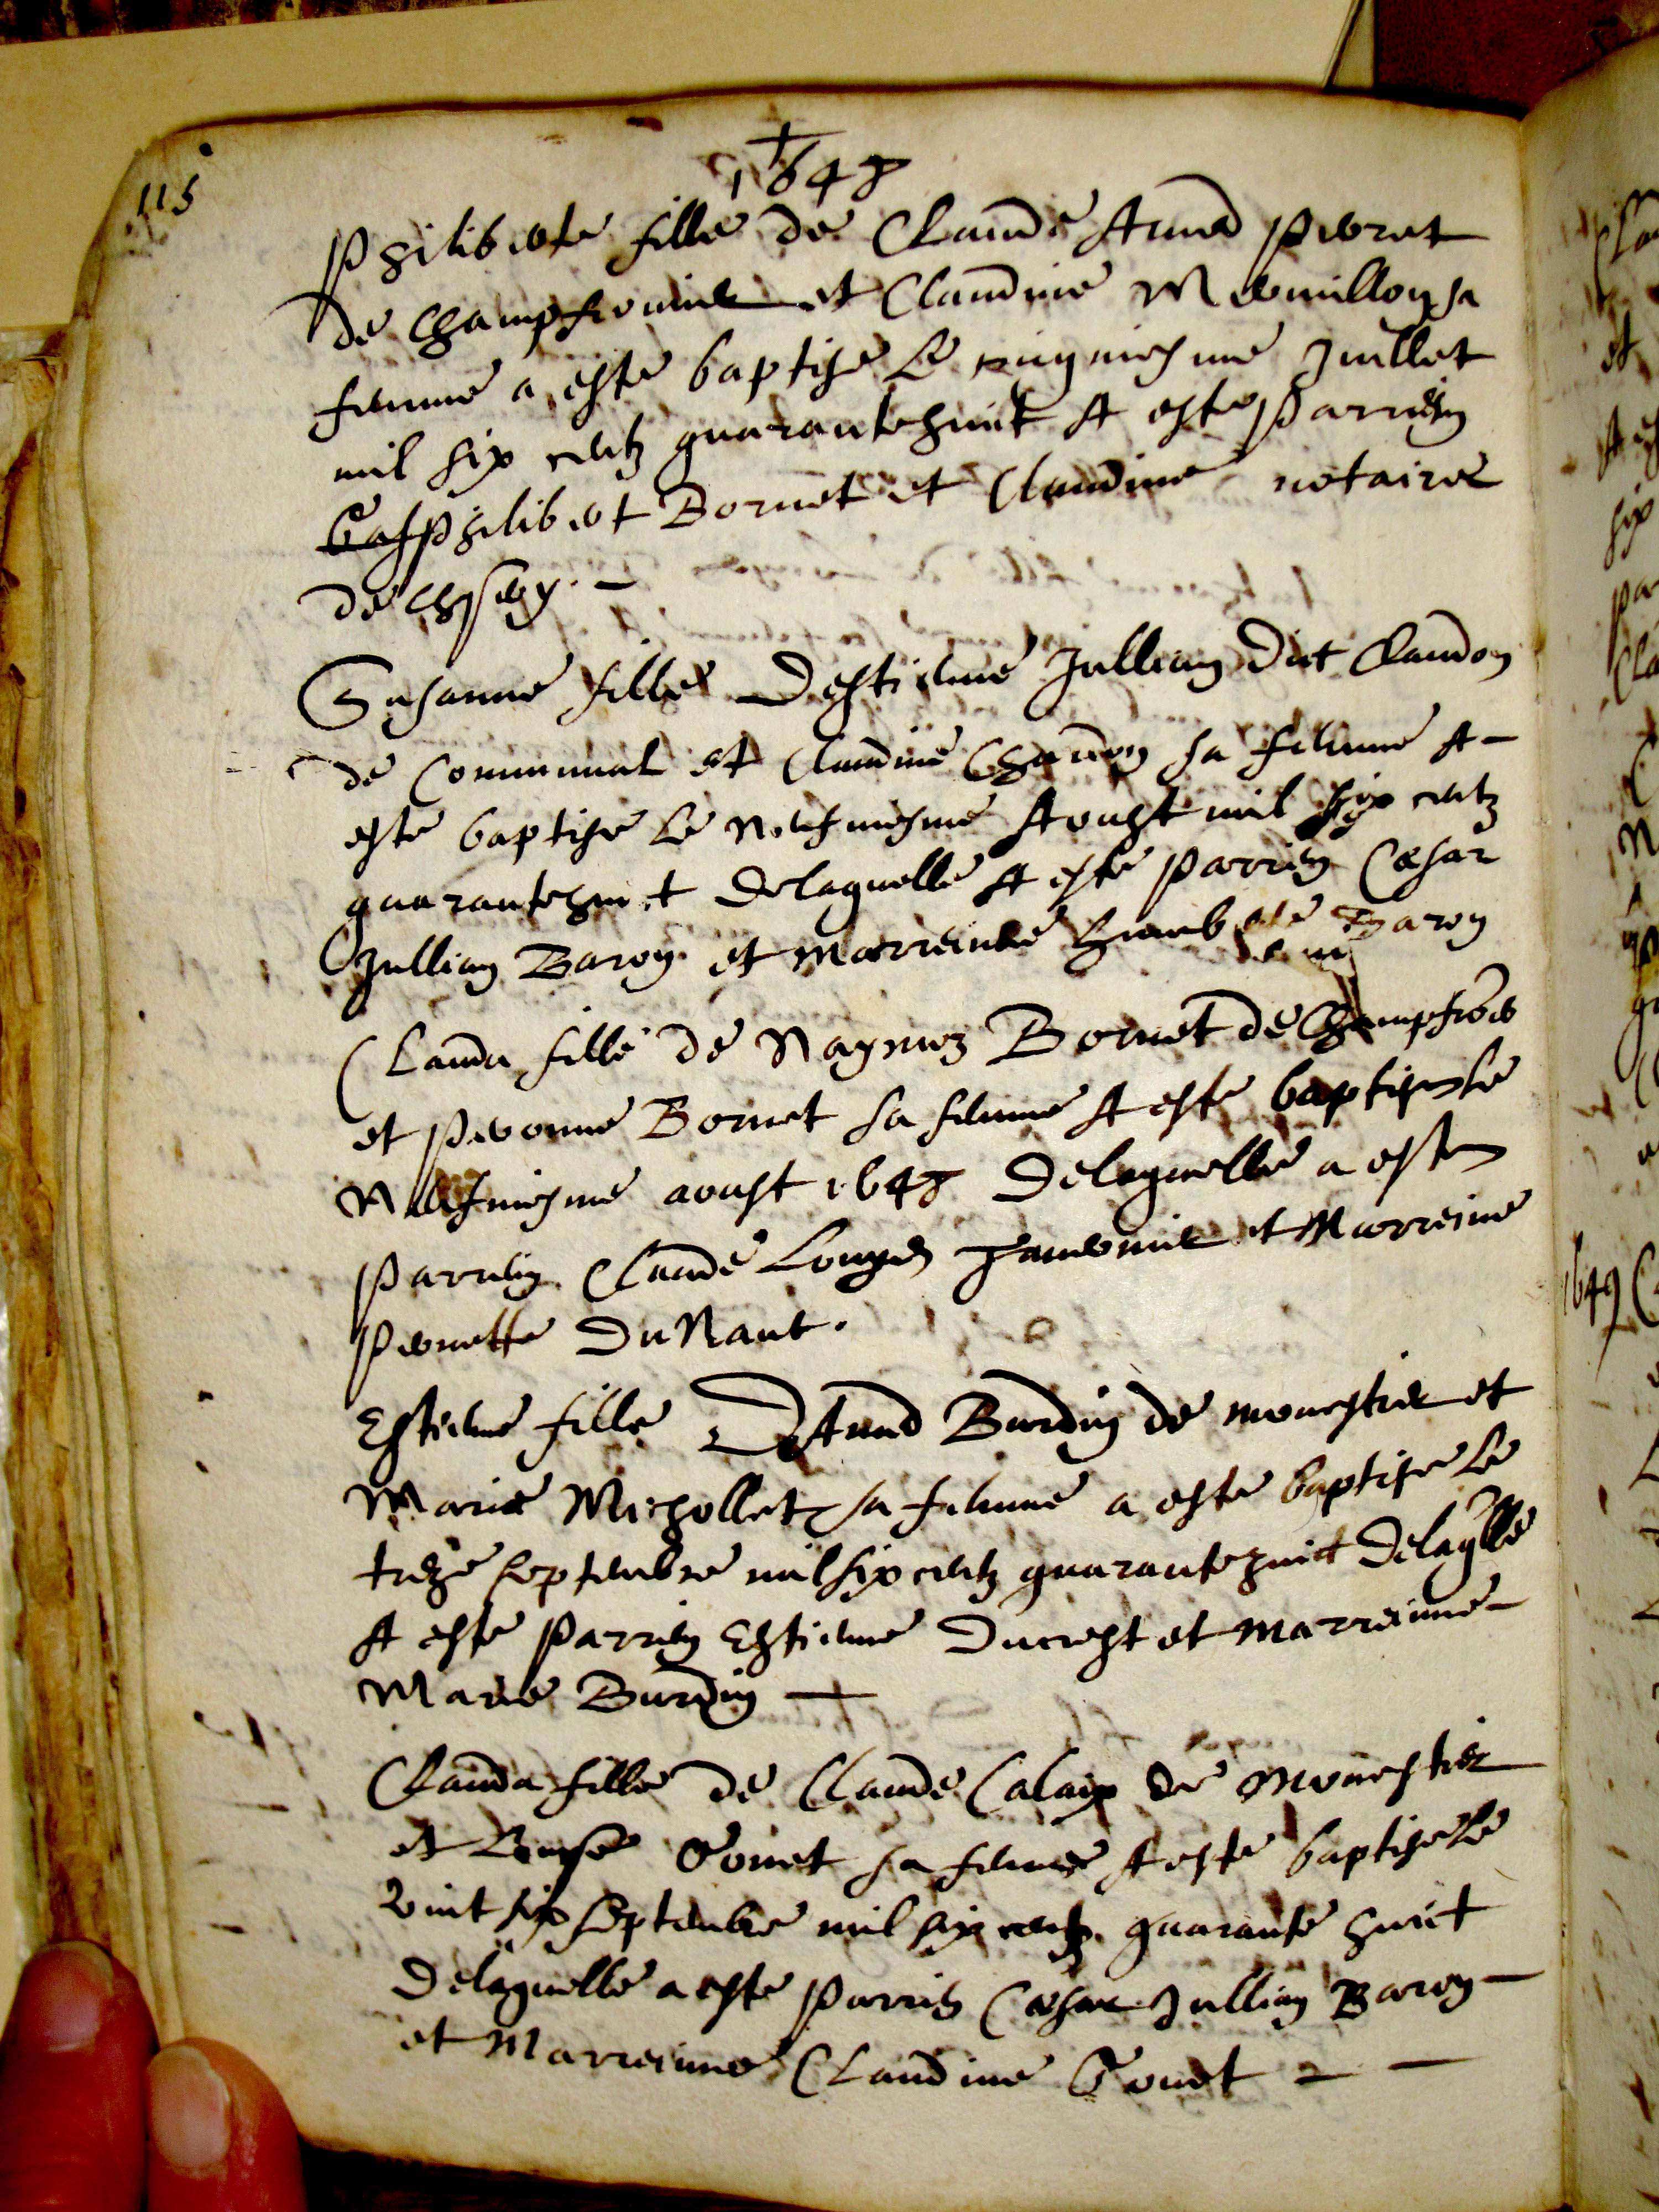 115
1648
Philiberte fille de Claude Amed Perret
de Champfromier et Claudine Mermillon sa
femme a este baptise le cinqmesme Juillet
mil six centz quarantehuict A este Parrein
Philibert Bornet et Claudine notaire
de
Susanne fille Destienne Jullian dict Claudon
de Communal et Claudine sa femme A
este baptise le Neufmesme Aoust mil six centz
quarantehuict delaquelle A este parrein Cesar
Jullian Baron et marreinne Humberte Baron
Clauda fille de Naymoz Bornet de Champfro
et Pernonne Bornet sa femme A este baptise le
Neufmesme aoust 1648 Delaquelle a este
Parrein Claude Louys Tavernier et Marreine
Pernette DuNant.
Estienne fille D Amed Burdin de monestier et
Marie Michollet sa femme a este baptise le
treze septembre mil six centz quarantehuict Delaqlle
A este Parrein Estienne Ducrest et marreinne
Marie Burdin
Clauda fille de Claude Calaix de Monestier
et Tonet sa femme A este baptise le
vint six septembre mil six centz quarante huict
Delaquelle a este Parrein Cesar Jullian Baron
et Marreinne Claudine Tonet
1649